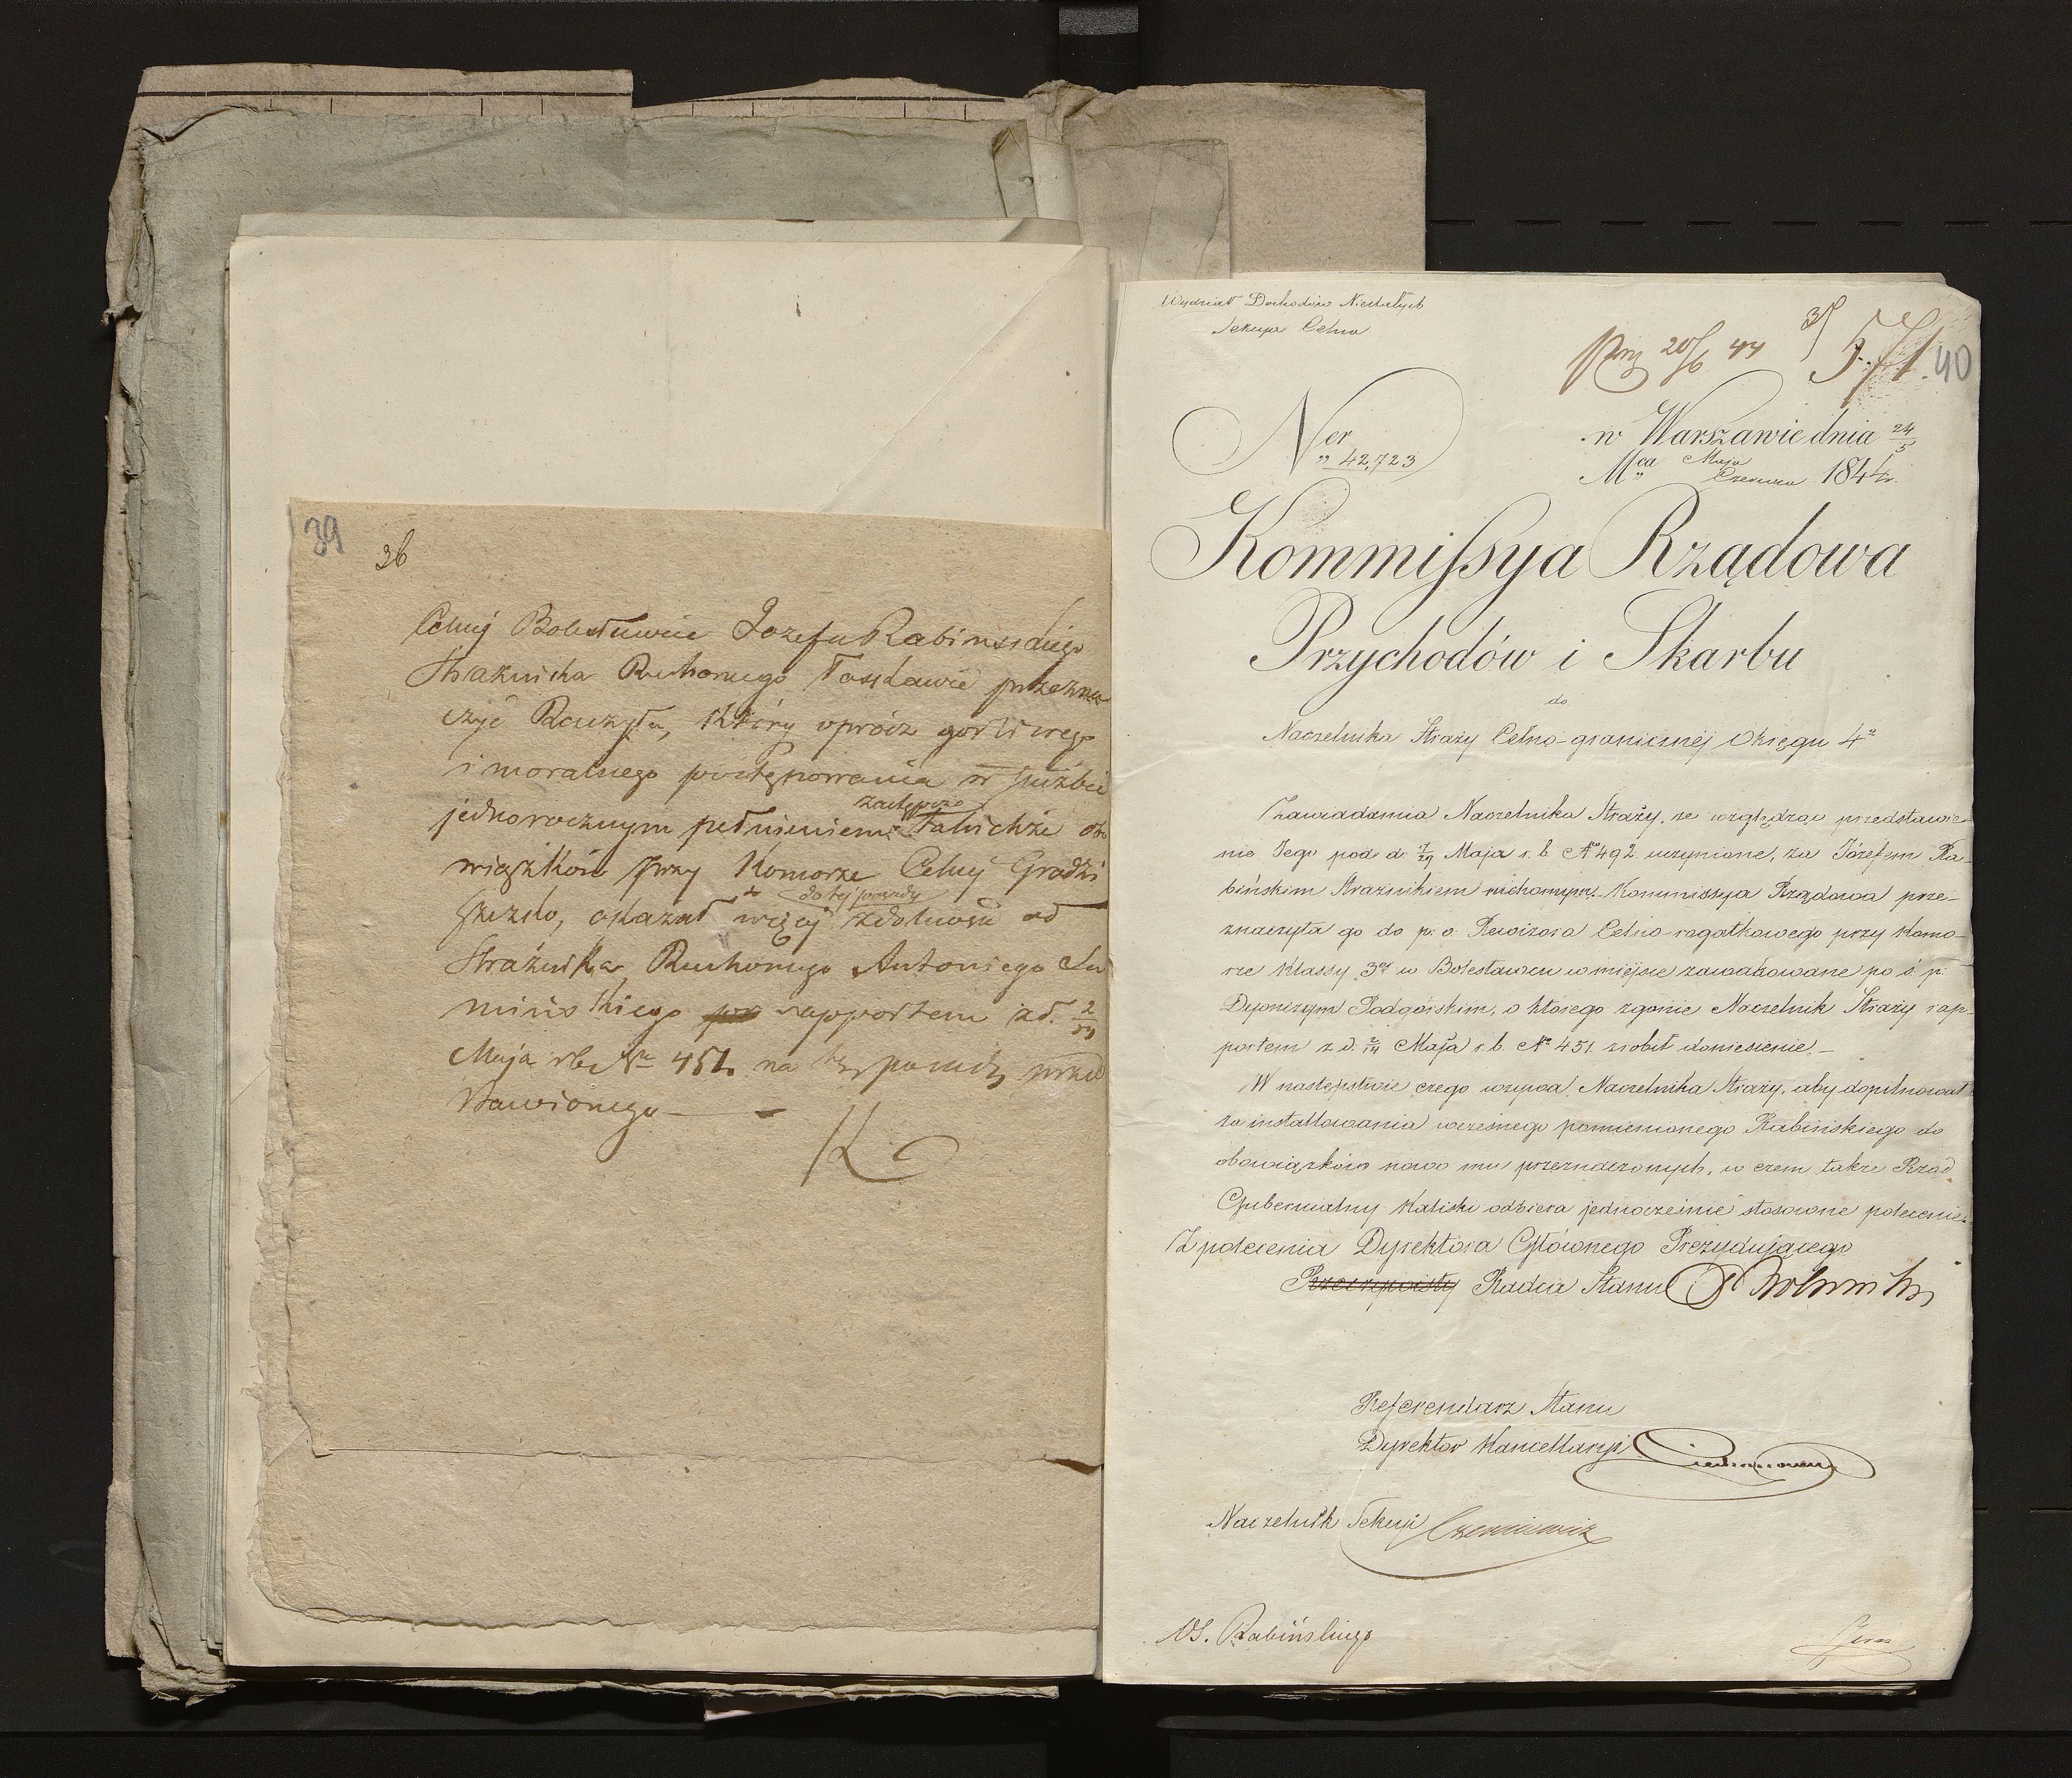 39
36
Celnej Bolesławie Jozefa Rabinskiego
Strażnika Ruchomego łaskawie przezna
czyć Raczyła, który oprócz gorliwego
i moralnego postępowania w służbie
zastępczo
jednorocznym pełnieniem takichże obo
wiązków przy Komorze Celnej
do tej posady
okazał więcej zdolności od
Strażnika Ruchomego Antoniego
mińskiego rapportem z d. 2/14
Maja rb. Nr 451. na tę posadę przed
stawionego —
Wydział Dochodów Niestałych
Sekcya Celna
37
20/6 44
571
40
Ner 42,723
w Warszawie dnia 24/5
Mca Maja/Czerwca 1844 r.
Kommissya Rządowa
Przychodów i Skarbu
do
Naczelnika Straży Celno-granicznéj Okręgu 4o
Zawiadamia Naczelnika Straży, że względząc przedstawie
nie Jego pod d. 7/29 Maja r. b. No 492 uczynione, za Józefem Ra
bińskim Strażnikiem ruchomym. Kommissya Rządowa prze-
znaczyła go do p. o. Rewizora Celno-rogatkowego przy Komo-
rze Klassy 3ej w Bolesławcu w miejsce zawakowane po ś. p.
Dyonizym Podgórskim, o którego zgonie Naczelnik Straży rap-
portem z d. 2/14 Maja r. b. No 451. zrobił doniesienie. —
W następstwie czego wzywa Naczelnika Straży, aby dopilnował
zainstallowania wcześnego pomienionego Rabińskiego do
obowiązków nowo mu przeznaczonych, w czem także Rząd
Gubernialny Kaliski odbiera jednocześnie stosowne polecenie.
Z polecenia Dyrektora Głównego Prezydującego
Rzeczywisty Radca Stanu
Referendarz Stanu
Dyrektor Kancellaryi
Naczelnik Sekcyi
Rabińskiego